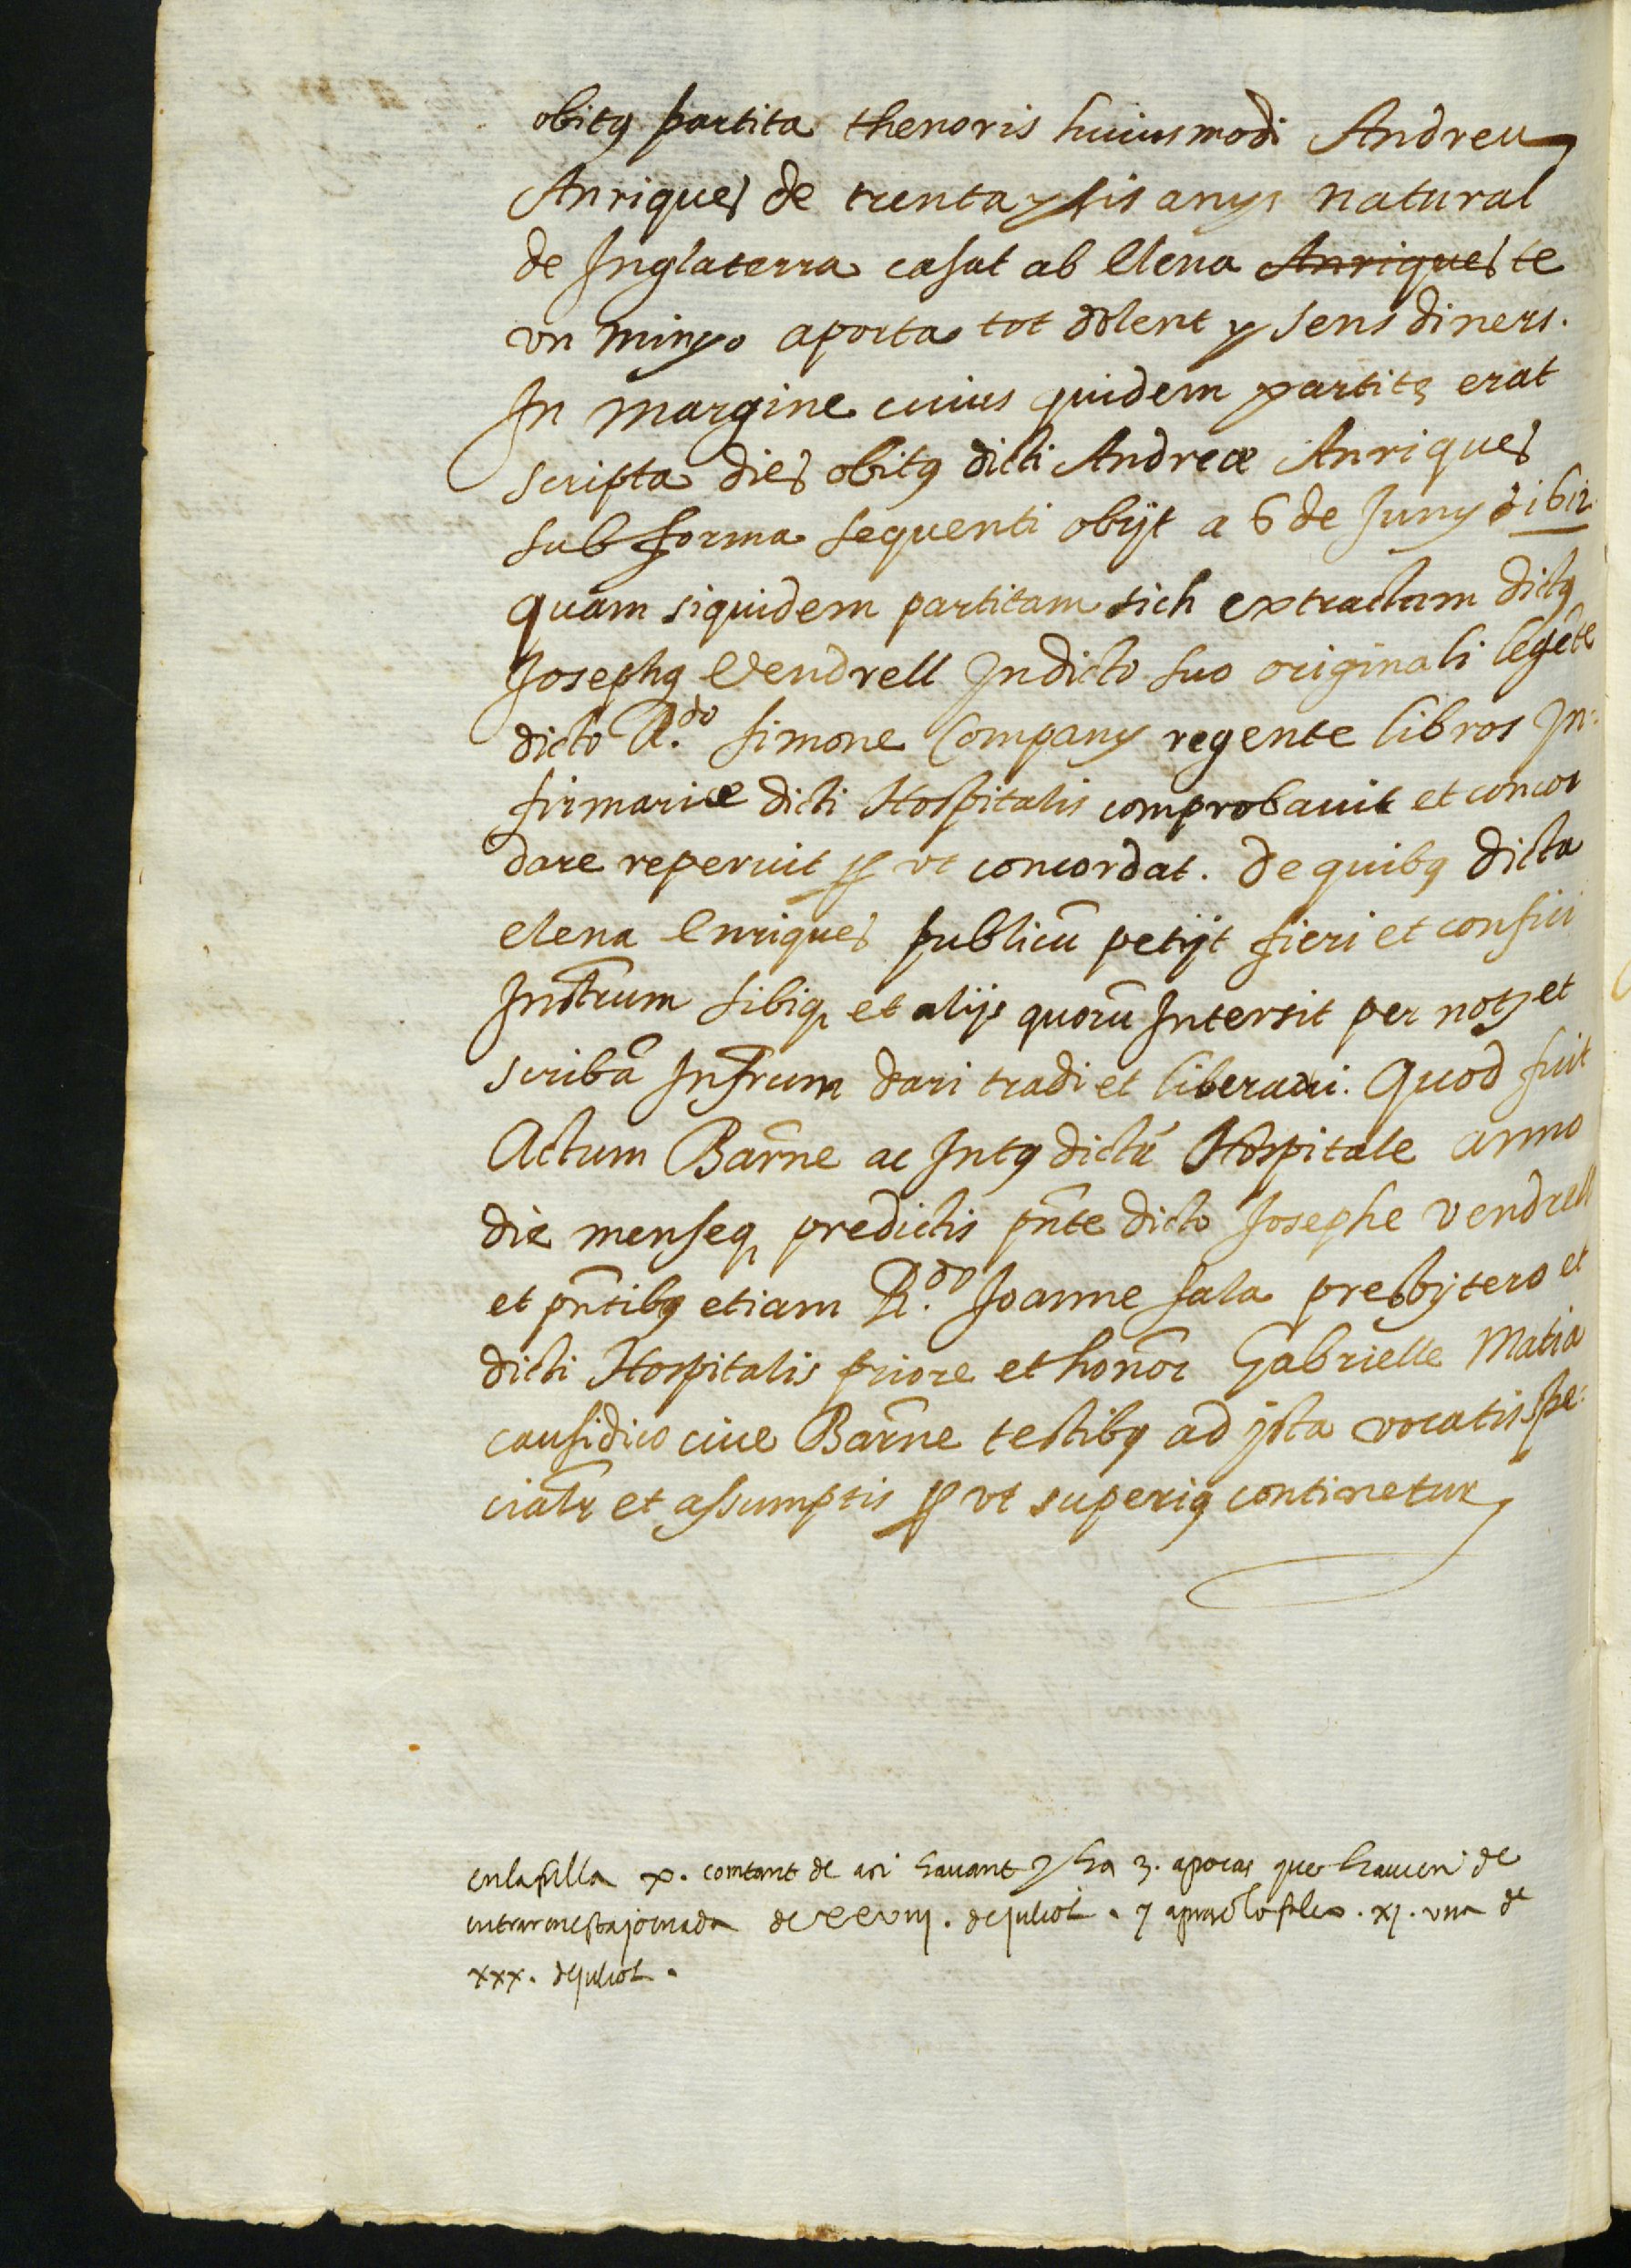 obitꝰ partita thenoris huiusmodi Andreu
Anriques de trenta y sis anys natural
de Inglaterra casat ab Elena Anriques te
vn minyo aporta tot dolent y sens diners.
In margine cuius quidem partitę erat
scripta dies obitꝰ dicti Andreæ Anriques
sub forma sequenti obijt a 6 de Juny 1612
quam siquidem partitam sich extractam dictꝰ
Josephꝰ Vendrell In dicto suo originali legẽte
dicto R.do Simone Company regente libros In=
firmariæ dicti Hospitalis comprobauit et concor
dare reperuit ꝓ vt concordat. De quibꝰ dicta
elena Enriques publicũ petijt fieri et confici
Instrum sibiqꝫ et alijs quorũ Intersit per notꝫ et
scribã Infrum dari tradi et liberari. Quod fuit
Actum Barñe ac Intꝰ dictũ Hospitale anno
die menseqꝫ predictis pñte dicto Josephe Vendrell
et pñtibꝰ etiam R.do Joanne Sala presbijtero et
dicti Hospitalis priore et honor̃ Gabrielle Matia
causidico ciue Barñe testibꝰ ad ista vocatis spe=
cialr̃ et assumptis ꝓ vt superiꝰ continetur
en la fulla x. comtant de aci hauant y ha 3. apocas que hauien de
entrar en esta jornada de xxviij. de juliol. y apres lo fol xj. vna de
xxx. de juliol.